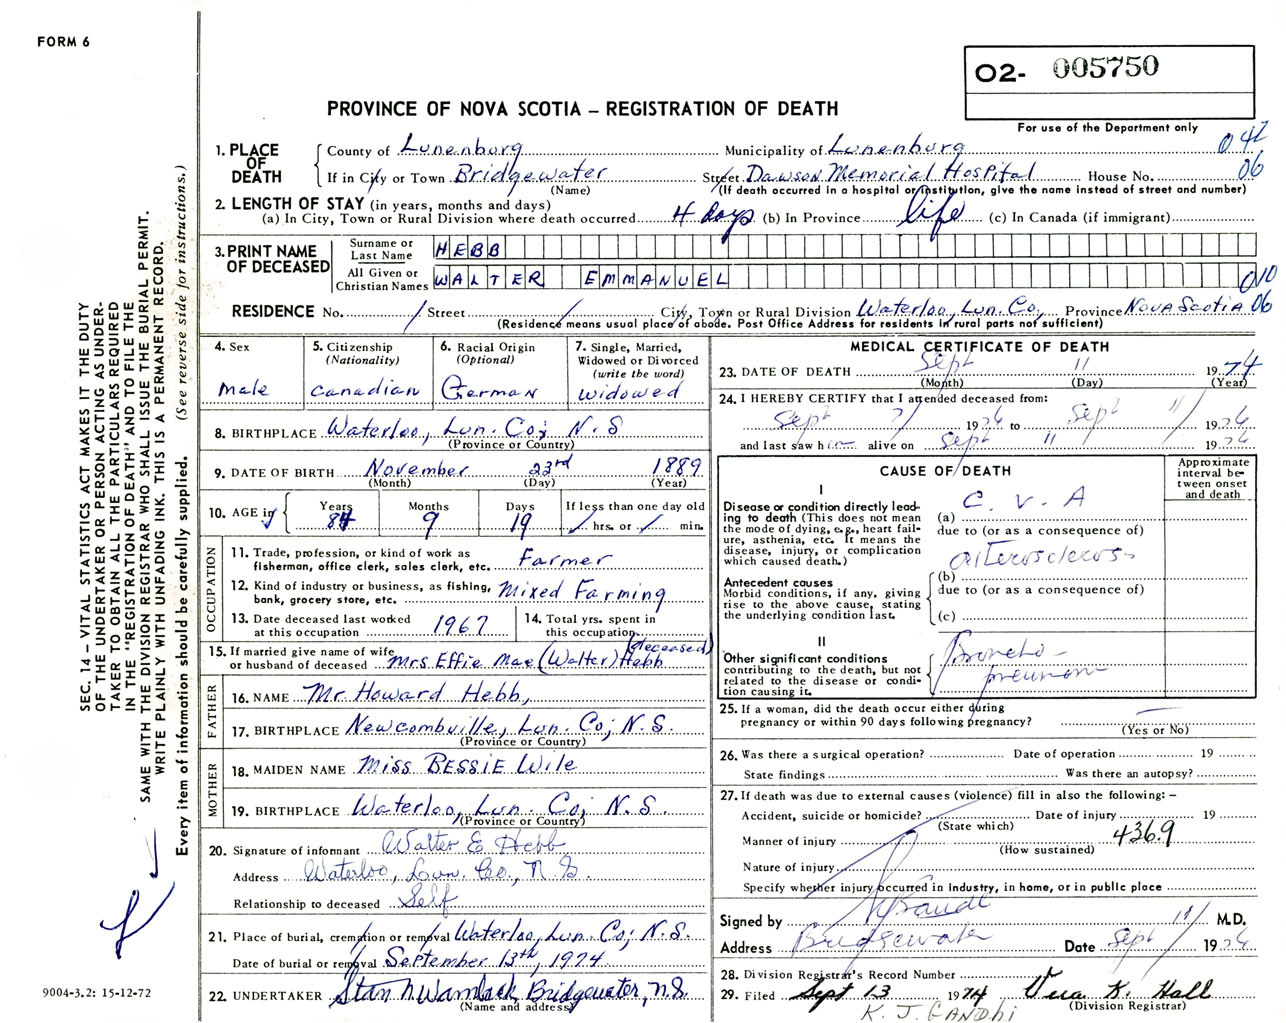 FORM 6
O2- 005750
PROVINCE OF NOVA SCOTIA – REGISTRATION OF DEATH
For use of the Department only
1. PLACE OF DEATH
County of Lunenburg Municipality of Lunenburg 042
If in City or Town Bridgewater Street Dawson Memorial Hospital House No. 06
(Name) (If death occurred in a hospital or institution, give the name instead of street and number)
2. LENGTH OF STAY (in years, months and days)
(a) In City, Town or Rural Division where death occurred 4 days (b) In Province life (c) In Canada (if immigrant)
3. PRINT NAME OF DECEASED
Surname or Last Name HEBB
All Given or Christian Names WALTER EMMANUEL 010
RESIDENCE No. / Street / City, Town or Rural Division Waterloo, Lun. Co., Province Nova Scotia 06
(Residence means usual place of abode. Post Office Address for residents in rural parts not sufficient)
4. Sex
Male
5. Citizenship
(Nationality)
Canadian
6. Racial Origin
(Optional)
German
7. Single, Married,
Widowed or Divorced
(write the word)
Widowed
8. BIRTHPLACE Waterloo, Lun. Co; N.S
(Province or Country)
9. DATE OF BIRTH November 23rd 1889
(Month) (Day) (Year)
10. AGE in
Years Months Days If less than one day old
84 9 19 / hrs. or / min.
OCCUPATION
11. Trade, profession, or kind of work as
fisherman, office clerk, sales clerk, etc. Farmer
12. Kind of industry or business, as fishing,
bank, grocery store, etc. Mixed Farming
13. Date deceased last worked
at this occupation 1967
14. Total yrs. spent in
this occupation
15. If married give name of wife
or husband of deceased Mrs Effie Mae (Walter) Hebb (deceased)
FATHER
16. NAME Mr. Howard Hebb,
17. BIRTHPLACE Newcombville, Lun. Co; N.S.
(Province or Country)
MOTHER
18. MAIDEN NAME Miss BESSIE Wile
19. BIRTHPLACE Waterloo, Lun. Co; N.S.
(Province or Country)
20. Signature of informant Walter E Hebb
Address Waterloo, Lun. Co., N.S.
Relationship to deceased Self
21. Place of burial, cremation or removal Waterloo, Lun. Co; N.S.
Date of burial or removal September 13th, 1974
22. UNDERTAKER Stan Bridgewater, N.S.
(Name and address)
MEDICAL CERTIFICATE OF DEATH
23. DATE OF DEATH Sept 11 1974
(Month) (Day) (Year)
24. I HEREBY CERTIFY that I attended deceased from:
Sept 7/ 1974 to Sept 11/ 1974
and last saw him alive on Sept 11 1974
CAUSE OF DEATH
Approximate
interval be-
tween onset
and death
I
Disease or condition directly lead-
ing to death (This does not mean
the mode of dying, e.g., heart fail-
ure, asthenia, etc. It means the
disease, injury, or complication
which caused death.)
(a) C. V. A
due to (or as a consequence of)
arterosclerosis
Antecedent causes
Morbid conditions, if any, giving
rise to the above cause, stating
the underlying condition last.
(b)
due to (or as a consequence of)
(c)
II
Other significant conditions
contributing to the death, but not
related to the disease or condi-
tion causing it.
Broncho-
pneumonia
25. If a woman, did the death occur either during
pregnancy or within 90 days following pregnancy? —
(Yes or No)
26. Was there a surgical operation? Date of operation 19
State findings Was there an autopsy?
27. If death was due to external causes (violence) fill in also the following: –
Accident, suicide or homicide? Date of injury 19
(State which)
Manner of injury 436.9
(How sustained)
Nature of injury
Specify whether injury occurred in industry, in home, or in public place
Signed by 11/ M.D.
Address Bridgewater Date Sept 1974
28. Division Registrar's Record Number
29. Filed Sept 13 1974 Vera K. Hall
(Division Registrar)
K. J. GANDHI
SEC. 14 – VITAL STATISTICS ACT MAKES IT THE DUTY
OF THE UNDERTAKER OR PERSON ACTING AS UNDER-
TAKER TO OBTAIN ALL THE PARTICULARS REQUIRED
IN THE "REGISTRATION OF DEATH" AND TO FILE THE
SAME WITH THE DIVISION REGISTRAR WHO SHALL ISSUE THE BURIAL PERMIT.
WRITE PLAINLY WITH UNFADING INK. THIS IS A PERMANENT RECORD.
Every item of information should be carefully supplied. (See reverse side for instructions.)
9004-3.2: 15-12-72